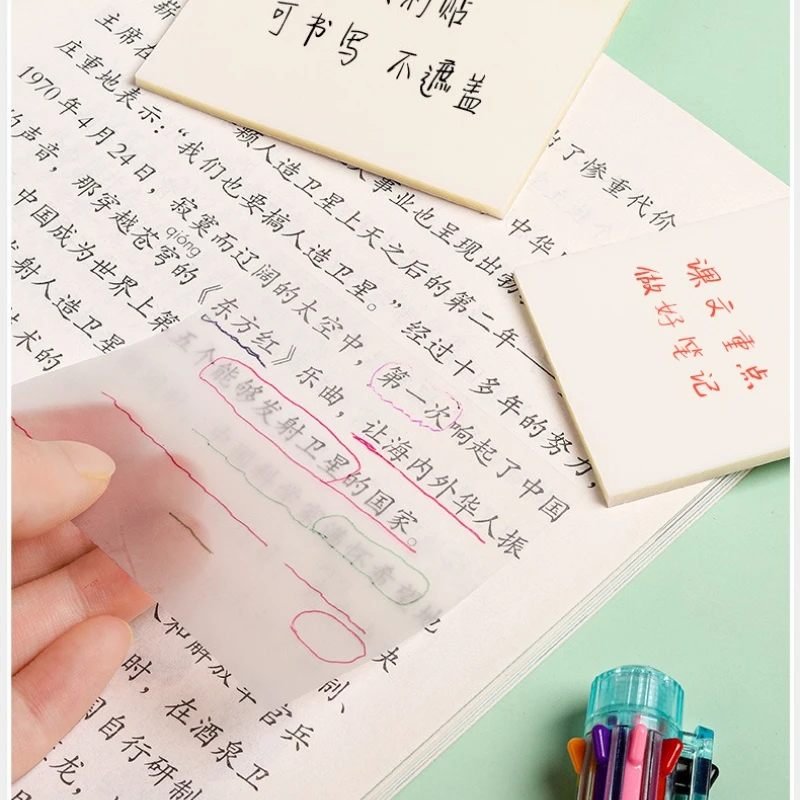 利贴
可书写 不遮盖
课文重点
做好笔记
出了惨重代价
中华
事业也呈现出
主席在 颗人造卫星上天之后的第二年——
庄重地表示：“我们也要搞人造卫星。”经过十多年的努力，
1970年4月24日，寂寞而辽阔的太空中，第一次响起了中国
qióng
声音，那穿越苍穹的《东方红》乐曲，让海内外华人振
中国成为世界上第五个能够发射卫星的国家。
射人造卫星
术的
央
制、
和解放军官兵
时，在酒泉卫
国自行研制
龙，